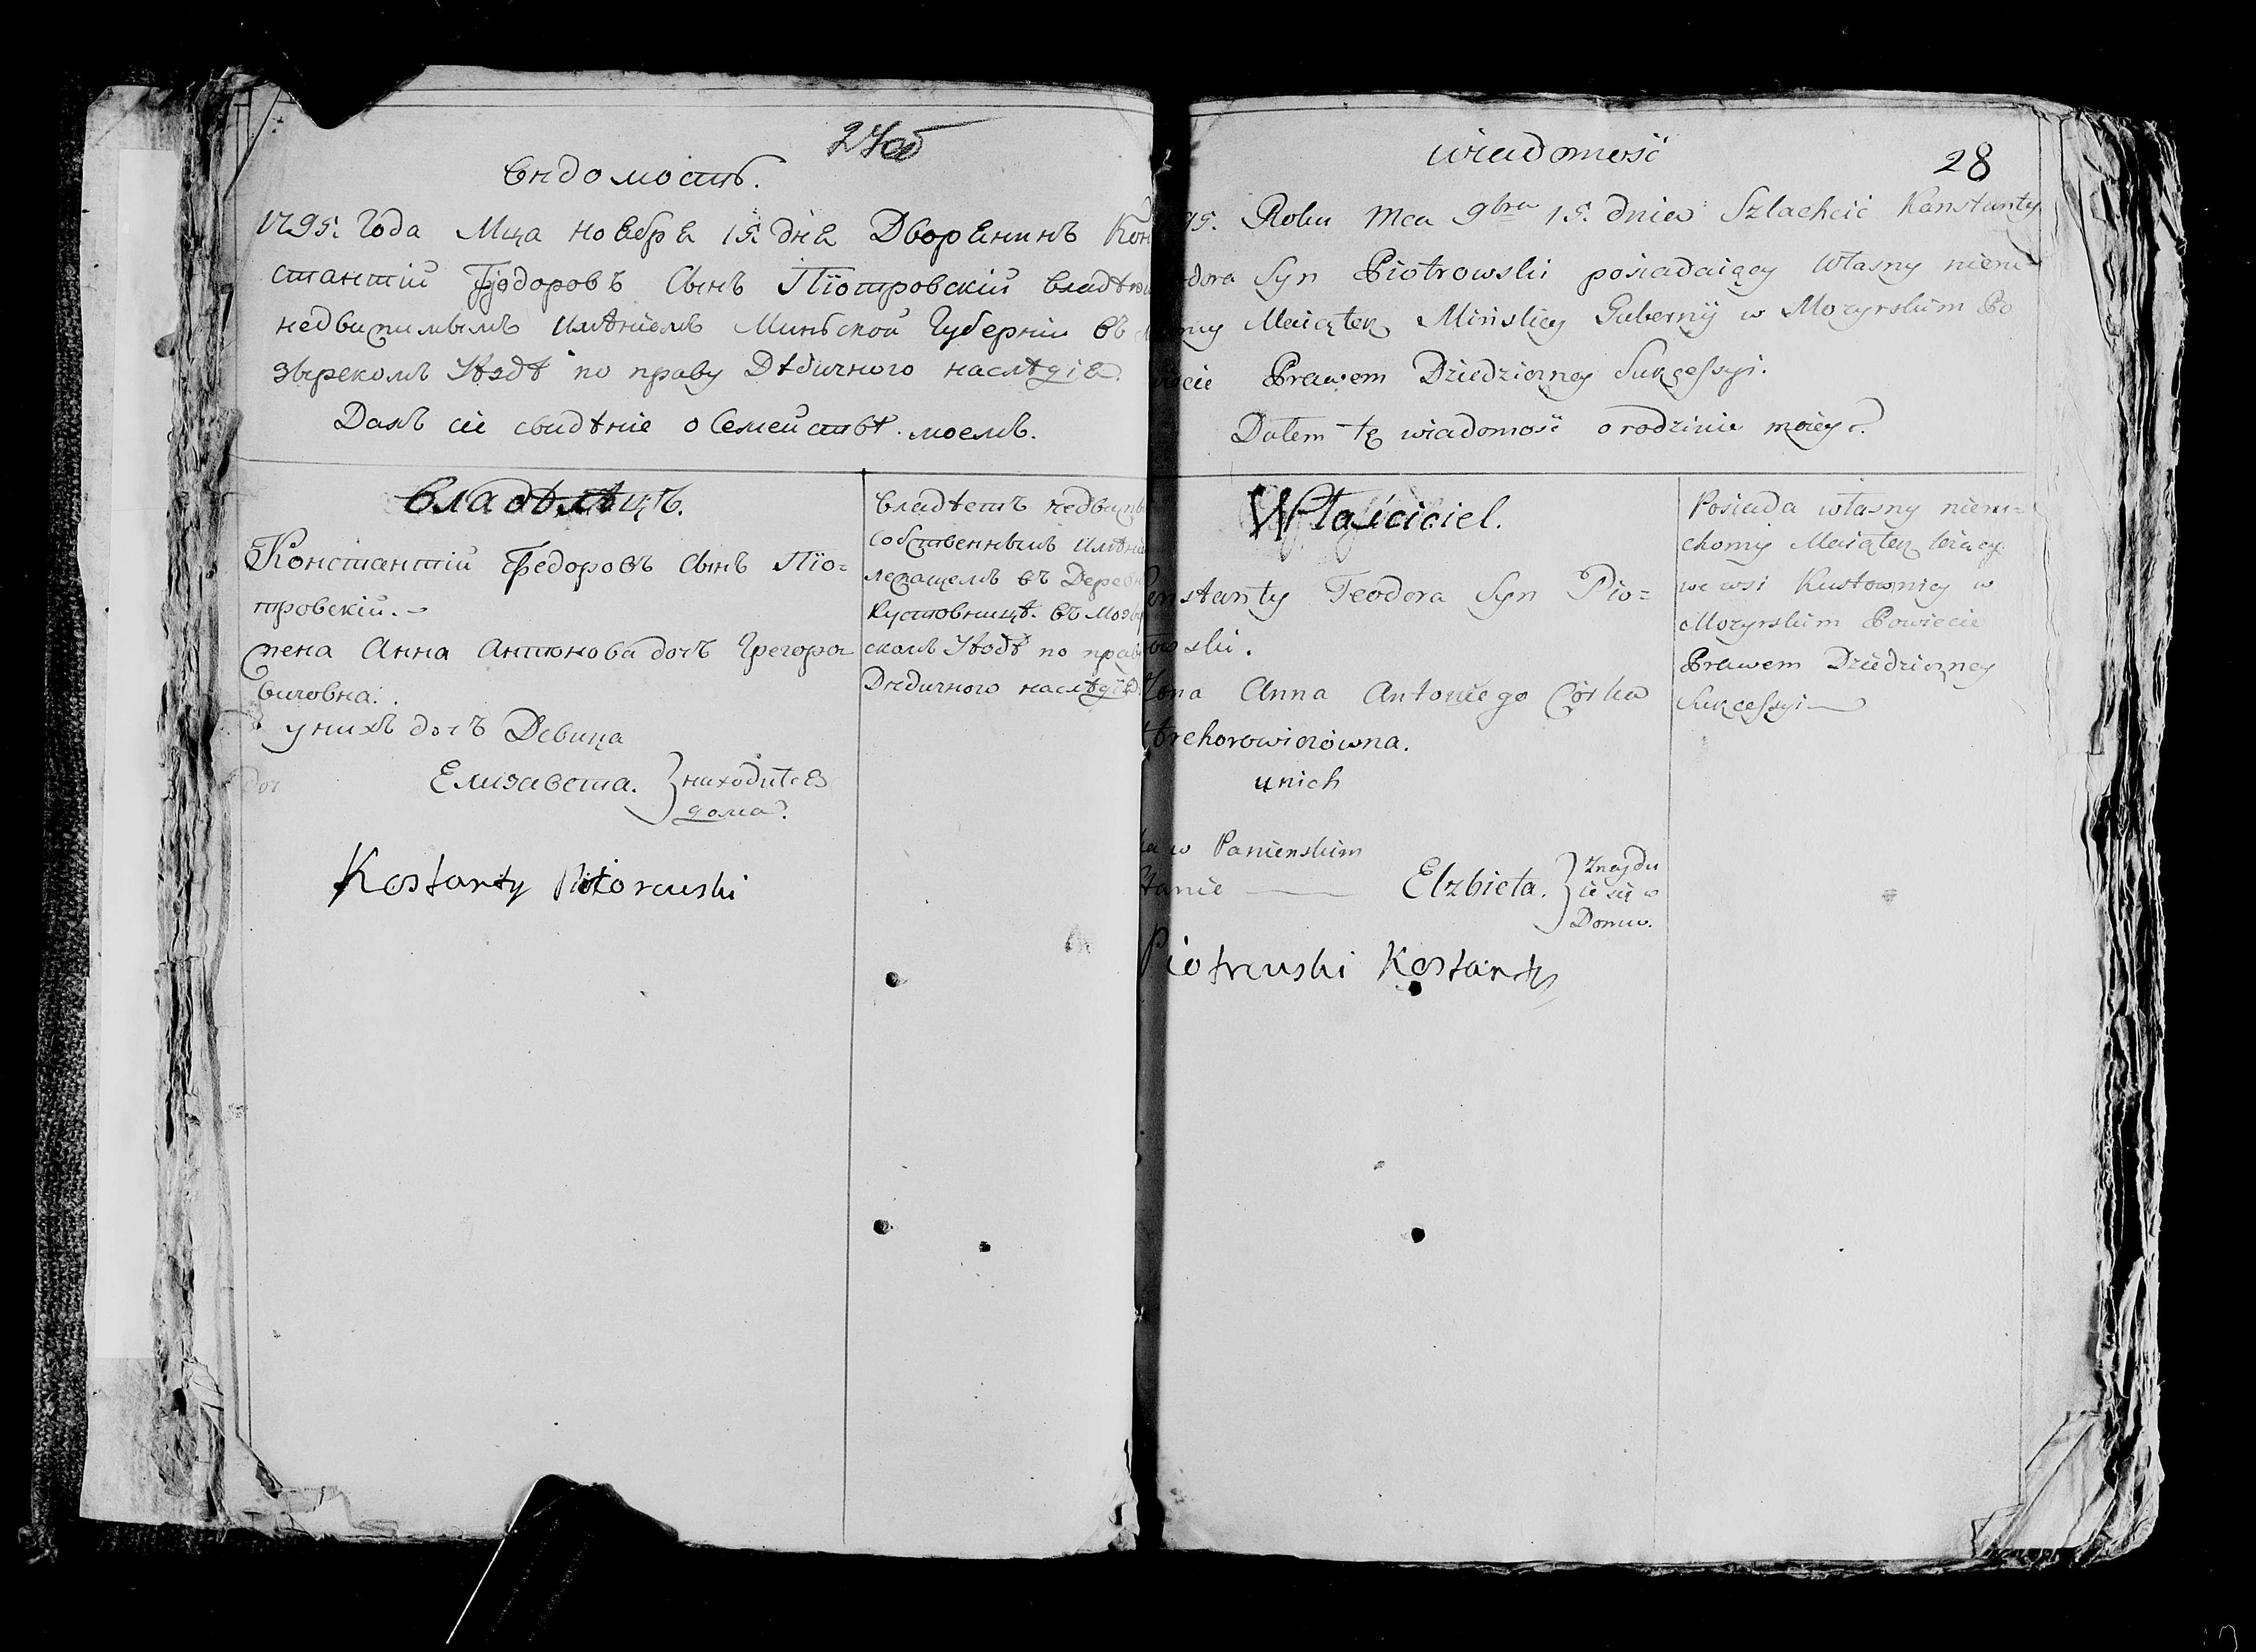 27об
Вѣдомость.
1795: Года Мца ноебре 15: дне Дворенинъ Кон
стантій Федоровъ Сынъ Піотровскій владѣю
недвижимымъ имѣніемъ Миньской Губерніи въ
зырскомъ Уѣздѣ по праву Дѣдичного наслѣдіе.
Далъ сіе свидѣніе о Семействѣ моемъ.
Владѣлецъ.
Константій Федоровъ Сынъ Піо=
тровскій.
жена Анна Антонова дочъ Грегоро
вичовна.
у нихъ дочъ Девица
Елизавета. } находитсе
дома.
Kostanty Piotorowski
Владѣетъ недвижы
собственнымъ имѣніе
лежащемъ въ Деревн
Кустовницѣ въ Мозыр
скомъ Уѣздѣ по праву
Дѣдичного наслѣдіе.
wiadomość
28
95. Roku Mca 9bra 15. dnia Szlachcic Kanstanty
dora Syn Piotrowski posiadaiący Własny nieru=
my Maiątek Mińskiey Gubernij w Mozyrskim Po
wiecie Prawem Dziedziczney Sukcessyi.
Dałem tę wiadomość o rodzinie moiey.
Właściciel.
onstanty Teodora Syn Pio=
owski.
Żona Anna Antoniego Córka
Hrehorowiczówna.
u nich
ka w Panieńskim
Stanie — Elzbieta. } Znaydu
ie się w
Domu.
Piotrowski Kostanty
Posiada własny nieru=
chomy Maiątek leżący
we wsi Kustownicy w
Mozyrskim Powiecie
Prawem Dziedziczney
Sukcessyi